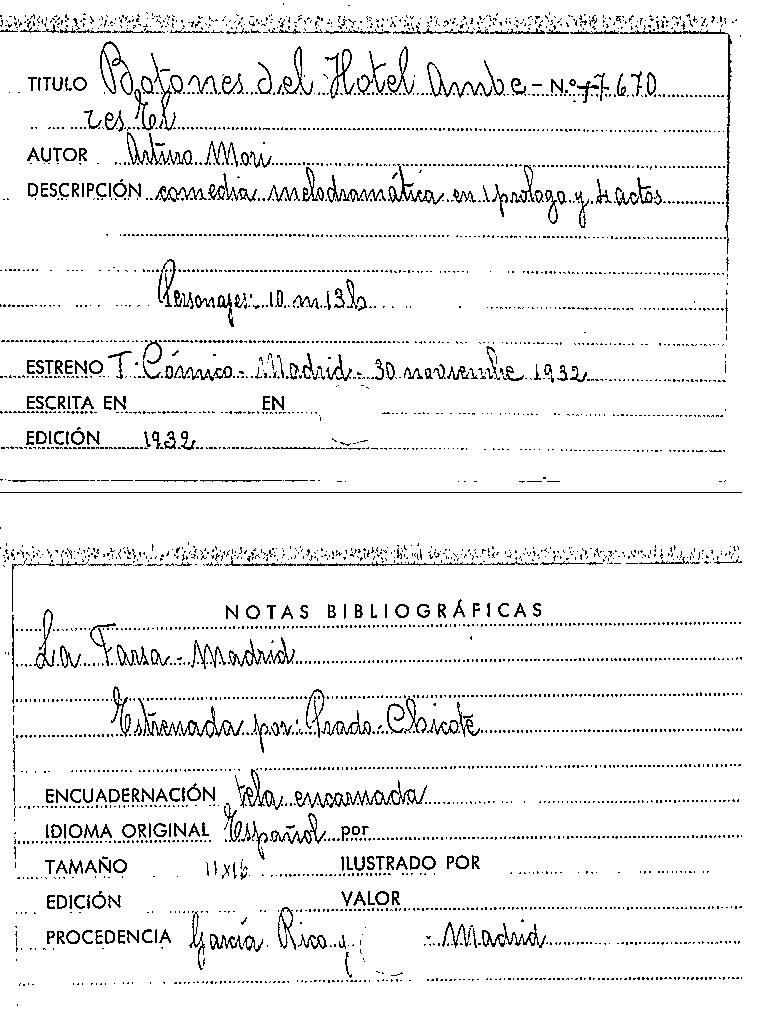 TITULO Botones del Hotel Ambe- N.º 17.670
res El
AUTOR Arturo Mori
DESCRIPCIÓN comedia melodramática en 1 prologo y 4 actos
Personajes: 10 m 13 h
ESTRENO T. Cómico - Madrid - 30 noviembre 1932
ESCRITA EN EN
EDICIÓN 1932
NOTAS BIBLIOGRÁFICAS
La Farsa - Madrid
Estrenada por: Prado-Chicote
ENCUADERNACIÓN tela encarnada
IDIOMA ORIGINAL Español por
TAMAÑO 11x16 ILUSTRADO POR
EDICIÓN VALOR
PROCEDENCIA García Rico y - Madrid